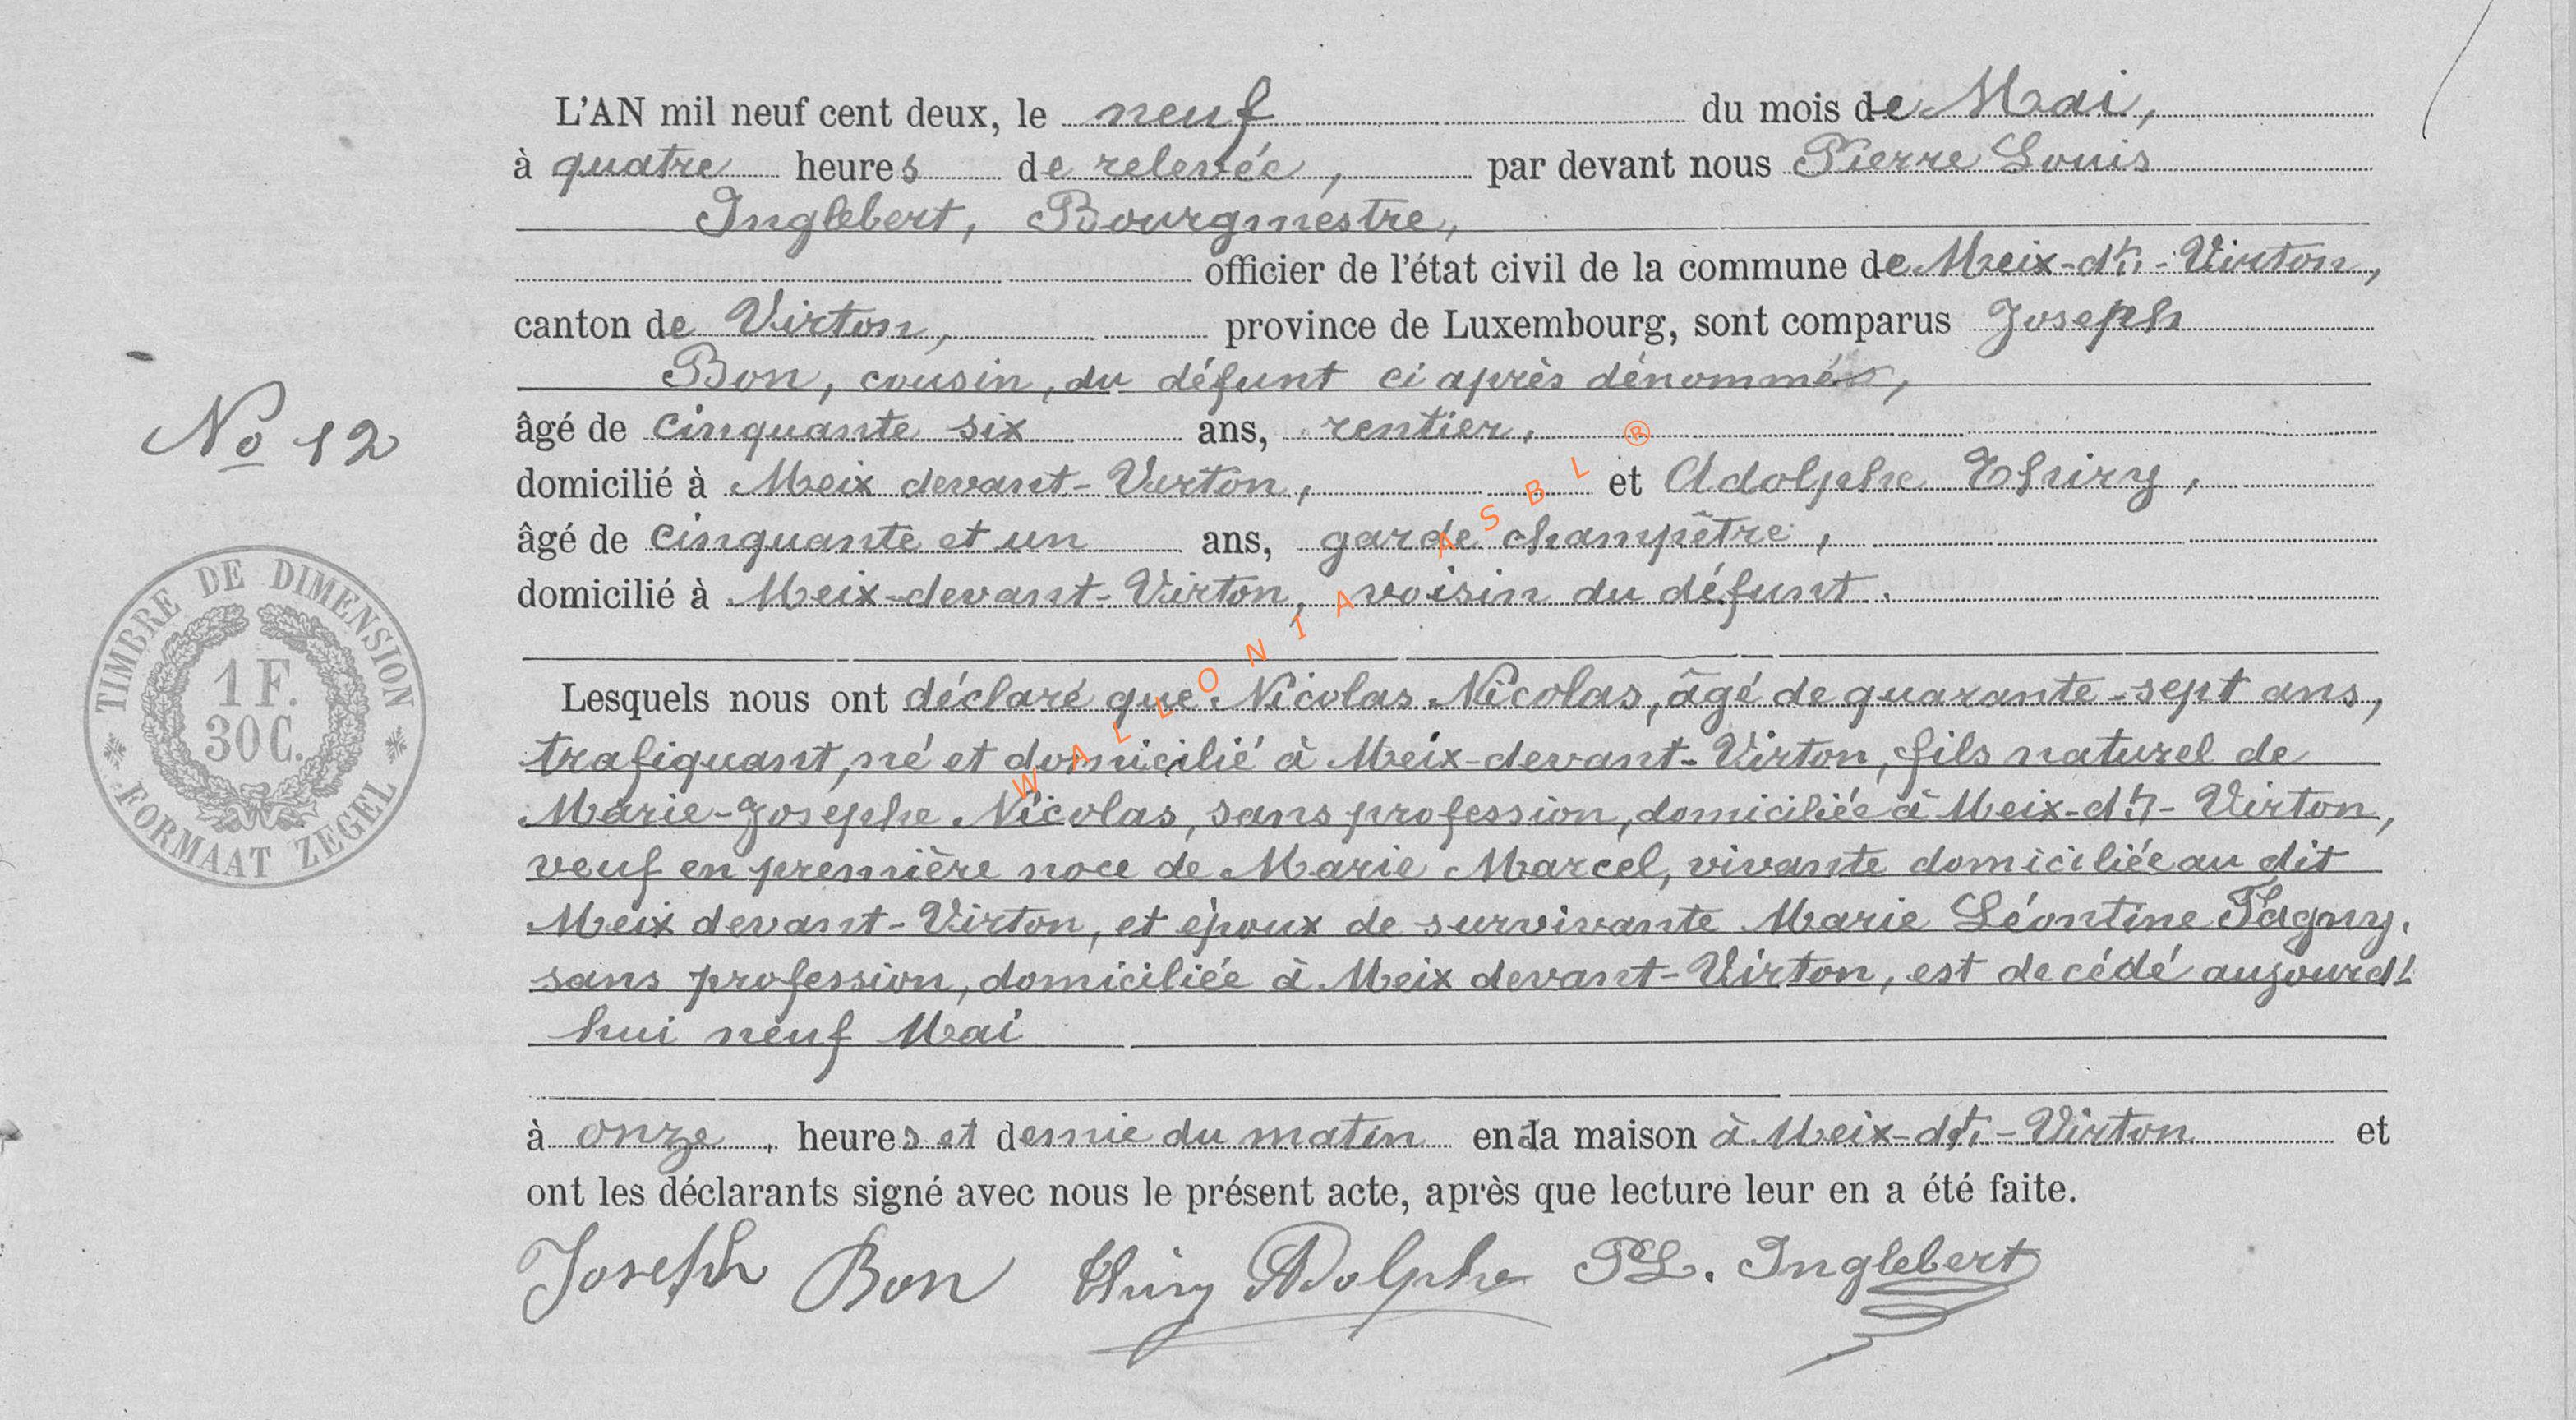 L'AN mil neuf cent deux, le neuf du mois de Mai,
à quatre heures de relevée, par devant nous Pierre Louis
Inglebert, Bourgmestre,
officier de l'état civil de la commune de Meix-dt-Virton,
canton de Virton, province de Luxembourg, sont comparus Joseph
Bon, cousin, du défunt ci après dénommé,
âgé de cinquante six ans, rentier,
domicilié à Meix devant-Virton, et Adolphe Thiry,
âgé de cinquante et un ans, garde champêtre,
domicilié à Meix-devant-Virton, voisin du défunt.
No 12
TIMBRE DE DIMENSION
1 F.
30 C.
FORMAAT ZEGEL
Lesquels nous ont déclaré que Nicolas Nicolas, âgé de quarante-sept ans,
trafiquant, né et domicilié à Meix-devant-Virton, fils naturel de
Marie-Josephe Nicolas, sans profession, domiciliée à Meix-dt-Virton,
veuf en première noce de Marie Marcel, vivante domiciliée au dit
Meix devant-Virton, et époux de survivante Marie Léontine Tagny,
sans profession, domiciliée à Meix devant-Virton, est decédé aujourd'
hui neuf Mai
à onze heures et demie du matin en la maison à Meix-dt-Virton et
ont les déclarants signé avec nous le présent acte, après que lecture leur en a été faite.
Joseph Bon Thiry Adolphe PL. Inglebert
WALLONIA ASBL ®